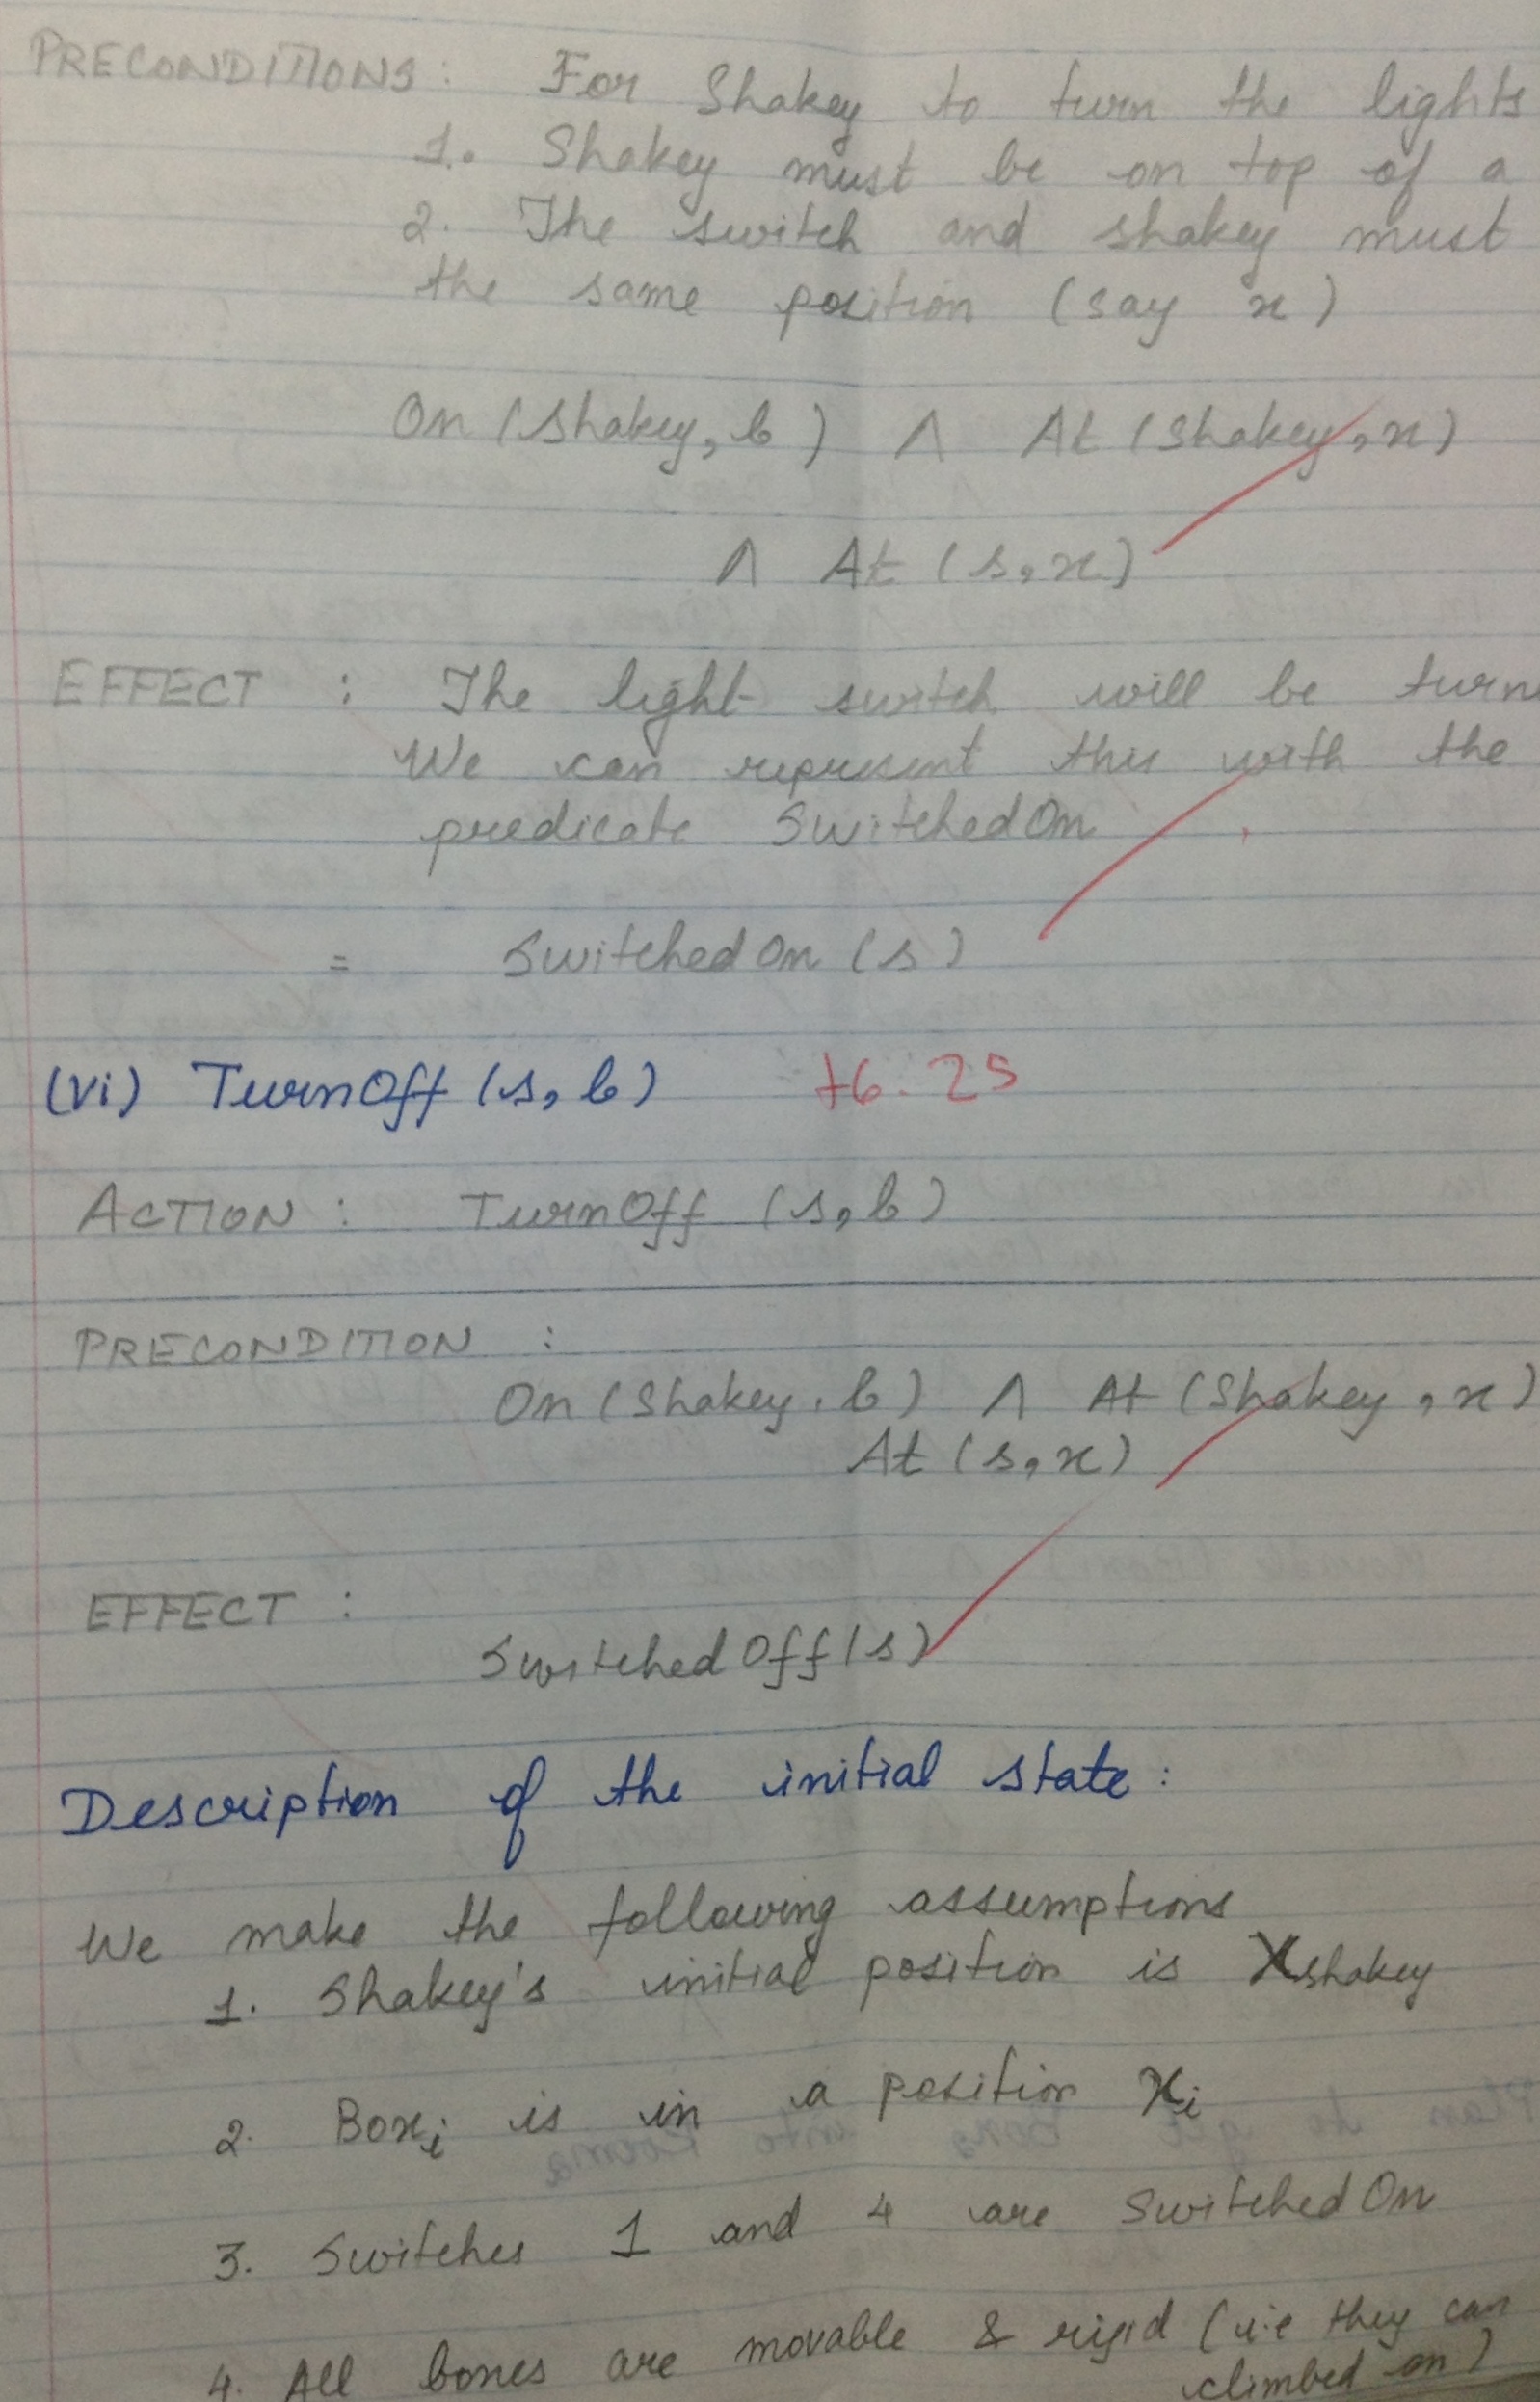 PRECONDITIONS: For Shakey to turn the lights
1. Shakey must be on top of a
2. The switch and shakey must
the same position (say x)
On (Shakey, b) ∧ At (Shakey, x)
∧ At (s, x)
EFFECT : The light switch will be turn
We can represent this with the
predicate SwitchedOn
= SwitchedOn (s)
(vi) TurnOff (s, b) +6.25
ACTION : TurnOff (s, b)
PRECONDITION :
On (Shakey, b) ∧ At (Shakey, x)
At (s, x)
EFFECT :
SwitchedOff (s)
Description of the initial state :
We make the following assumptions
1. Shakey's initial position is Xshakey
2. Boxi is in a position xi
3. Switches 1 and 4 are SwitchedOn
4. All boxes are movable & rigid (i.e they can
climbed on)